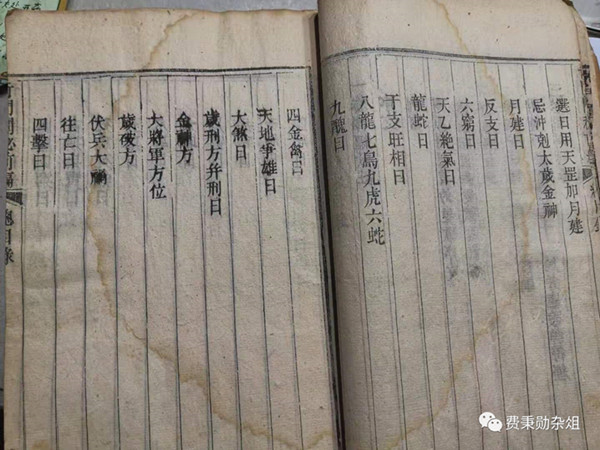 選日用天罡加月建
忌沖剋太歲金神
月建日
反支日
六窮日
天乙絶氣日
龍蛇日
干支旺相日
八龍七鳥九虎六蛇
九龍日
四金禽日
天地爭雄日
大煞日
歲刑方并刑日
金神方
大將軍方位
歲破方
伏兵大禍
往亡日
四擊日
總目錄
费秉勋杂俎